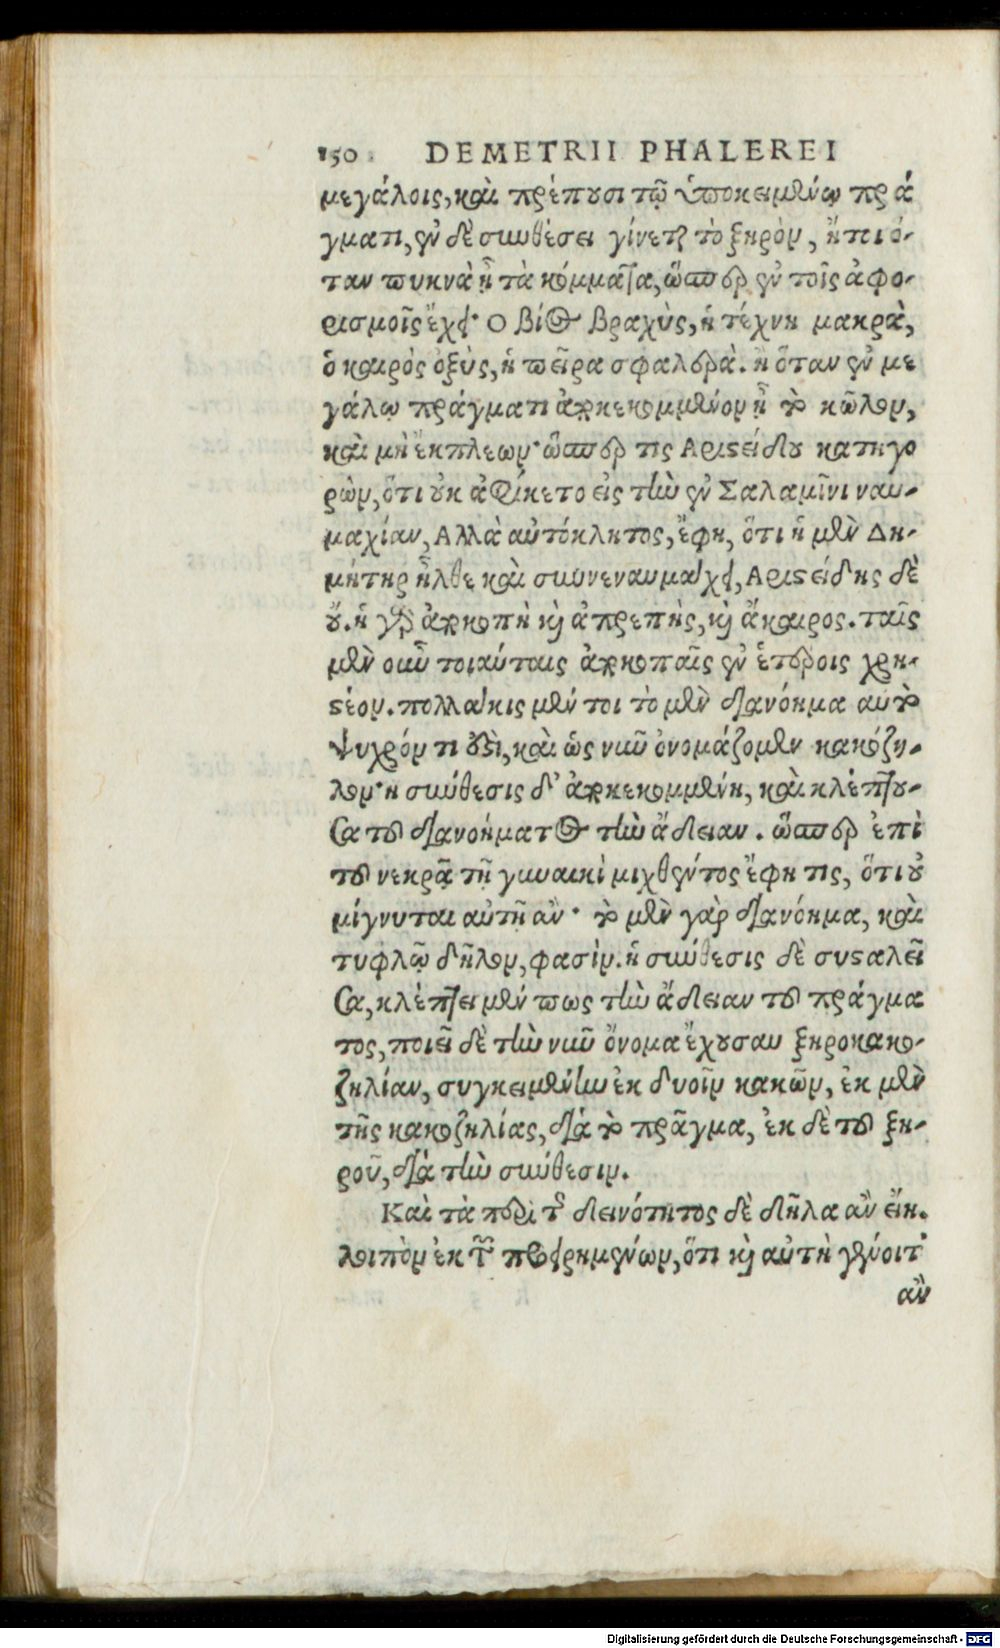 150 DEMETRII PHALEREI
μεγάλοις, καὶ πρέπουσι τῷ ὑποκειμένῳ πρά
γματι, ἐν δὲ συνθέσει γίνεται τὸ ξηρὸν, ἤτοι ὅ-
ταν πυκνὰ ᾖ τὰ κόμματα, ὥσπερ ἐν τοῖς ἀφο-
ρισμοῖς ἔχει· Ο βίος βραχὺς, ἡ τέχνη μακρὰ,
ὁ καιρὸς ὀξὺς, ἡ πεῖρα σφαλερὰ. ἢ ὅταν ἐν με
γάλῳ πράγματι ἀποκεκομμένον ᾖ τὸ κῶλον,
καὶ μὴ ἔκπλεων· ὥσπερ τις Αριστείδου κατηγο
ρῶν, ὅτι οὐκ ἀφίκετο εἰς τὴν ἐν Σαλαμῖνι ναυ-
μαχίαν, Αλλὰ αὐτόκλητος, ἔφη, ὅτι ἡ μὲν Δη-
μήτηρ ἦλθε καὶ συνεναυμάχει, Αριστείδης δὲ
οὔ. ἡ γὰρ ἀποκοπὴ καὶ ἀπρεπὴς, καὶ ἄκαιρος. ταῖς
μὲν οὖν τοιαύταις ἀποκοπαῖς ἐν ἑτέροις χρη-
στέον. πολλάκις μέν τοι τὸ μὲν διανόημα αὐτὸ
ψυχρόν τι ἐστὶ, καὶ ὡς νῦν ὀνομάζομεν κακόζη-
λον· ἡ σύνθεσις δ' ἀποκεκομμένη, καὶ κλέπτου-
σα τοῦ διανοήματος τὴν ἄδειαν. ὥσπερ ἐπὶ
τοῦ νεκρᾷ τῇ γυναικὶ μιχθέντος ἔφη τις, ὅτι οὐ
μίγνυται αὐτῇ ἂν· τὸ μὲν γὰρ διανόημα, καὶ
τυφλῷ δῆλον, φασὶν. ἡ σύνθεσις δὲ συσταλεῖ
σα, κλέπτει μέν πως τὴν ἄδειαν τοῦ πράγμα
τος, ποιεῖ δὲ τὴν νῦν ὄνομα ἔχουσαν ξηροκακο-
ζηλίαν, συγκειμένην ἐκ δυοῖν κακῶν, ἐκ μὲν
τῆς κακοζηλίας, διὰ τὸ πρᾶγμα, ἐκ δὲ τοῦ ξη-
ροῦ, διὰ τὴν σύνθεσιν.
Καὶ τὰ περὶ τῆς δεινότητος δὲ δῆλα ἂν εἴη.
λοιπὸν ἐκ τῶν προειρημένων, ὅτι καὶ αὐτὴ γένοιτ'
ἂν
Digitalisierung gefördert durch die Deutsche Forschungsgemeinschaft - DFG